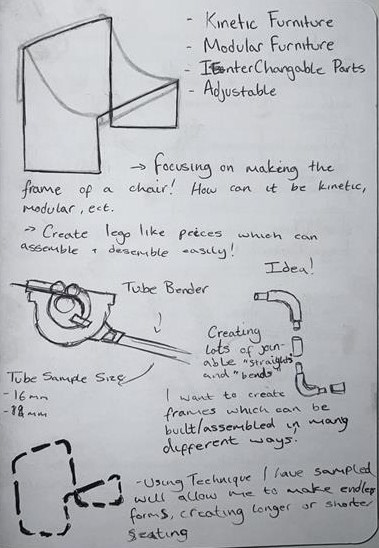 - Kinetic Furniture
- Modular Furniture
- InterChangable Parts
- Adjustable
→ Focusing on making the
frame of a chair! How can it be kinetic,
modular, ect.
→ Create lego like peices which can
assemble + desemble easily!
Idea!
Tube Bender
Creating
lots of join-
able "straights"
and "bends"
Tube Sample Size
- 16 mm
- 18 mm
I want to create
frames which can be
built/assembled in many
different ways.
- Using Technique I have sampled
will allow me to make endless
forms, creating longer or shorter
seating